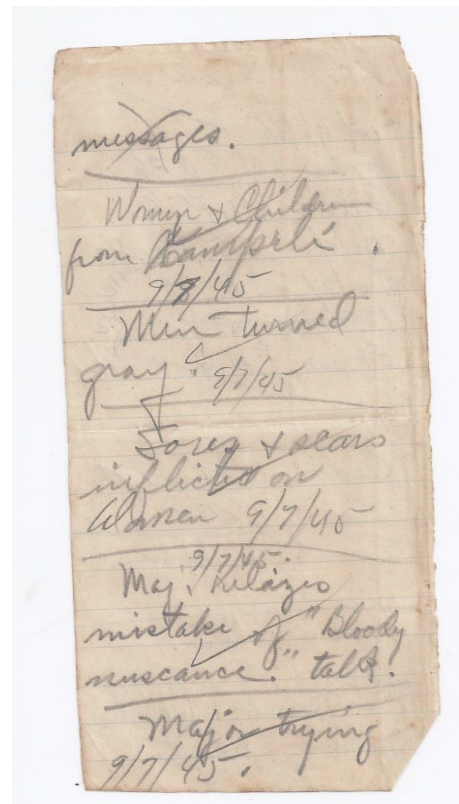 messages.
Women & Children
from Kampili.
9/8/45
Men turned
gray. 9/7/45
Sores & scars
inflicted on
Women 9/7/45
9/7/45.
Maj.
mistake of "Bloody
nuscance." talk.
Major trying
9/7/45.